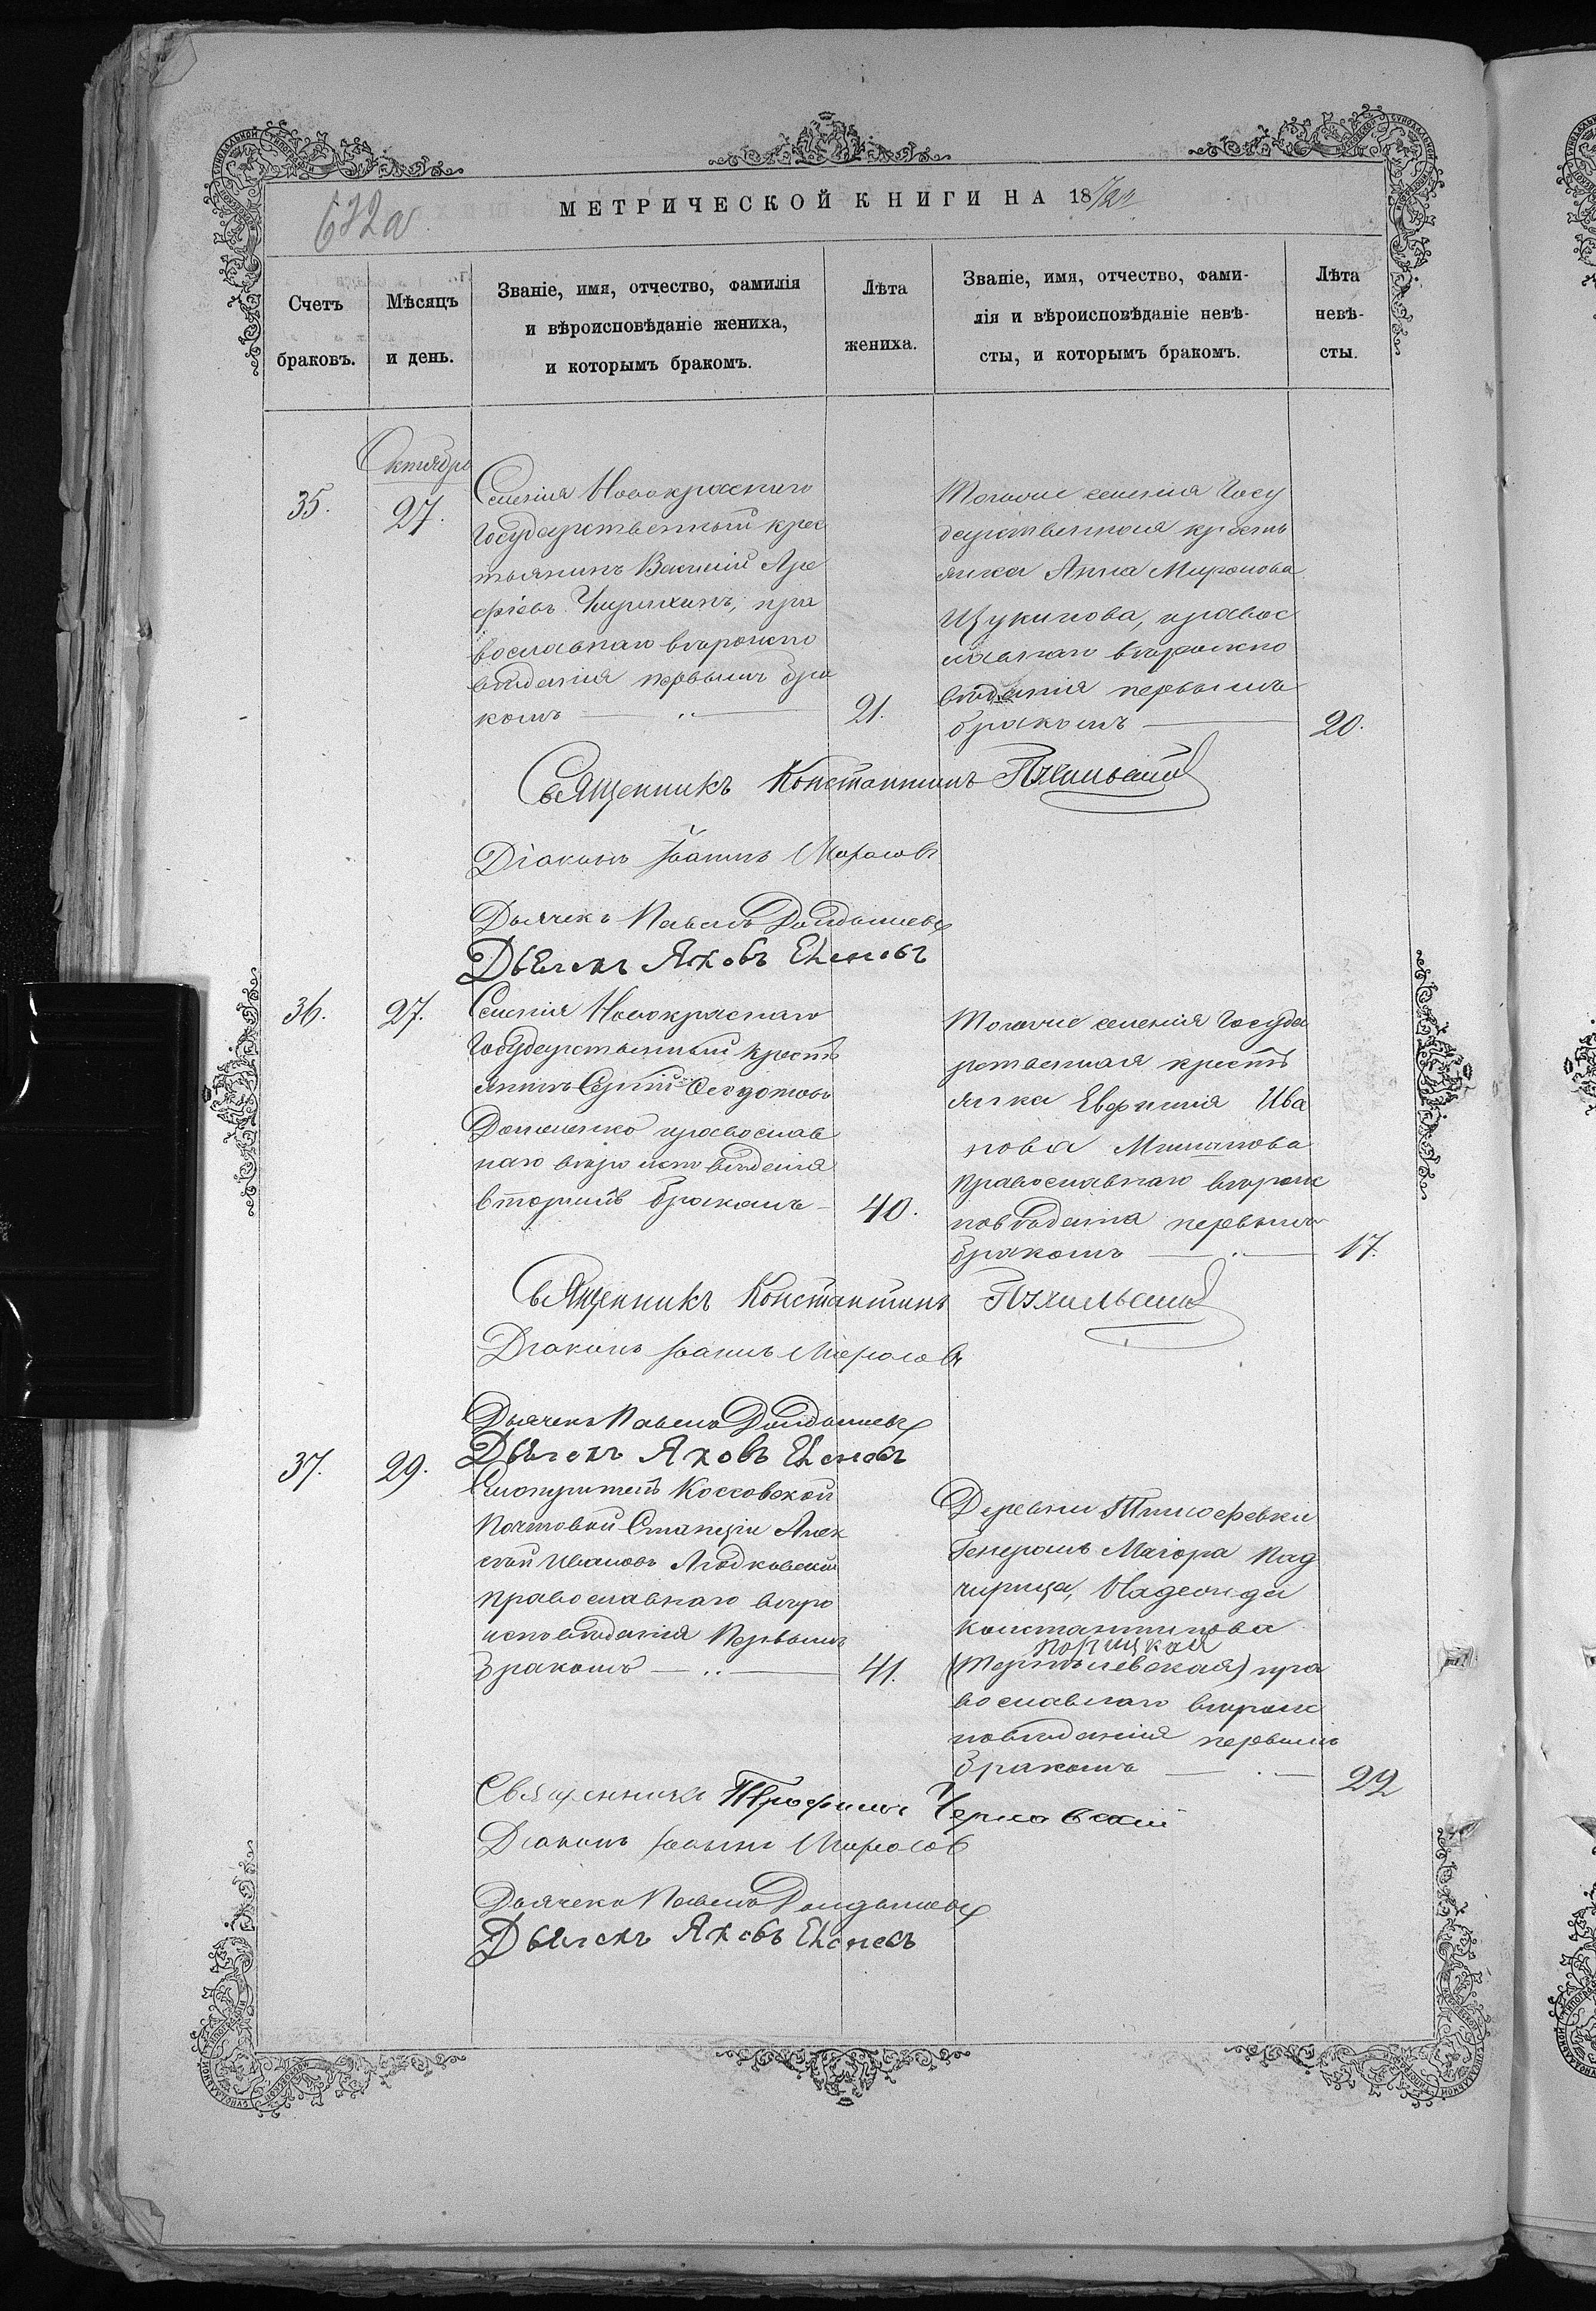 МЕТРИЧЕСКОЙ КНИГИ НА 18
632а
Счетъ браковъ.
Мѣсяцъ и день.
Званіе, имя, отчество, фамилія
и вѣроисповѣданіе жениха,
и которымъ бракомъ.
Лѣта
жениха.
Званіе, имя, отчество, фами-
лія и вѣроисповѣданіе невѣ-
сты, и которымъ бракомъ.
Лѣта
невѣ-
сты.
Октября
35.
27.
Селенія Новокраснаго
Государственный крес
тьянинъ Василій Аре
фіевъ пра
вославнаго вѣроиспо
вѣданія первымъ бра
комъ
21.
Тогоже селенія Госу
дарственная кресть
янка Анна Миронова
Щукинова, правос
лавнаго вѣроиспо
вѣданія первымъ
бракомъ
20.
Священникъ Константинъ
Діаконъ Іоаннъ
Дьячекъ Павелъ
Дьячекъ Яковъ
36.
27.
Селенія Новокраснаго
Государственный кресть
янинъ Сергій Ѳеодотовъ
православ
наго вѣроисповѣданія
вторымъ бракомъ
40.
Тогоже селенія Госуда
рственная кресть
янка Евфимія Ива
нова
православнаго вѣроис
повѣданія первымъ
бракомъ
17.
Священникъ Константинъ
Діаконъ Іоаннъ
Дьячекъ Павелъ
Дьячекъ Яковъ
37.
29.
Смотритель
Почтовой Станціи Алек
сѣй Ивановъ
православнаго вѣро
исповѣданія первымъ
бракомъ
41.
Деревни Тимофеевки
Генералъ Маіора Пад
чирица, Надежда
Константинова
пра
вославнаго вѣроис
повѣданія первымъ
бракомъ
22
Священникъ Трофимъ Черновскій
Діаконъ Іоаннъ
Дьячекъ Павелъ
Дьячекъ Яковъ